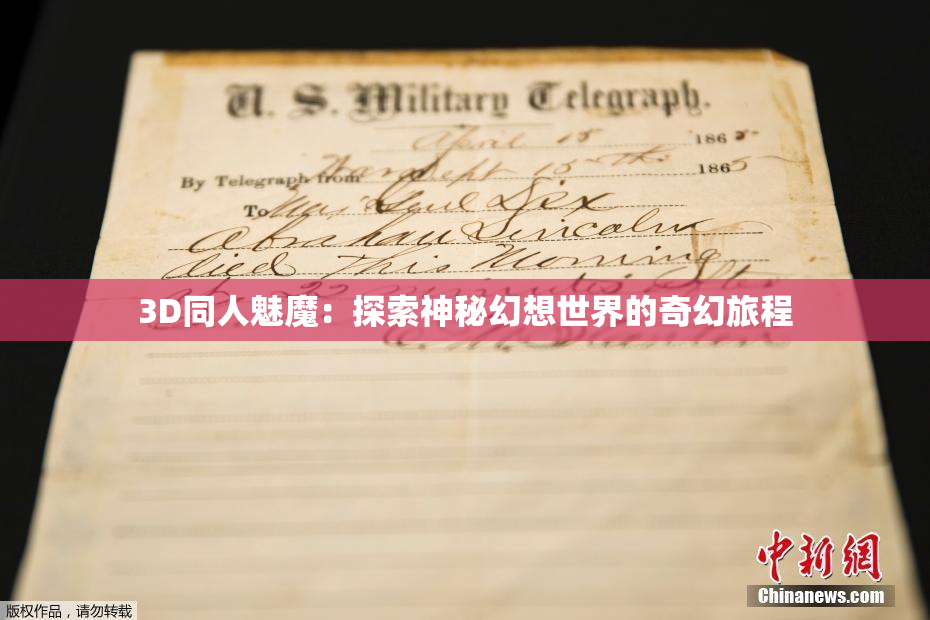 U. S. Military Telegraph.
April 15 1865
By Telegraph from War Dept 15th 1865
To Maj Genl Dix
Abraham Lincoln
died This Morning
at 22 minutes after
3D同人魅魔：探索神秘幻想世界的奇幻旅程
E. M. Stanton
中新网
Chinanews.com
版权作品，请勿转载